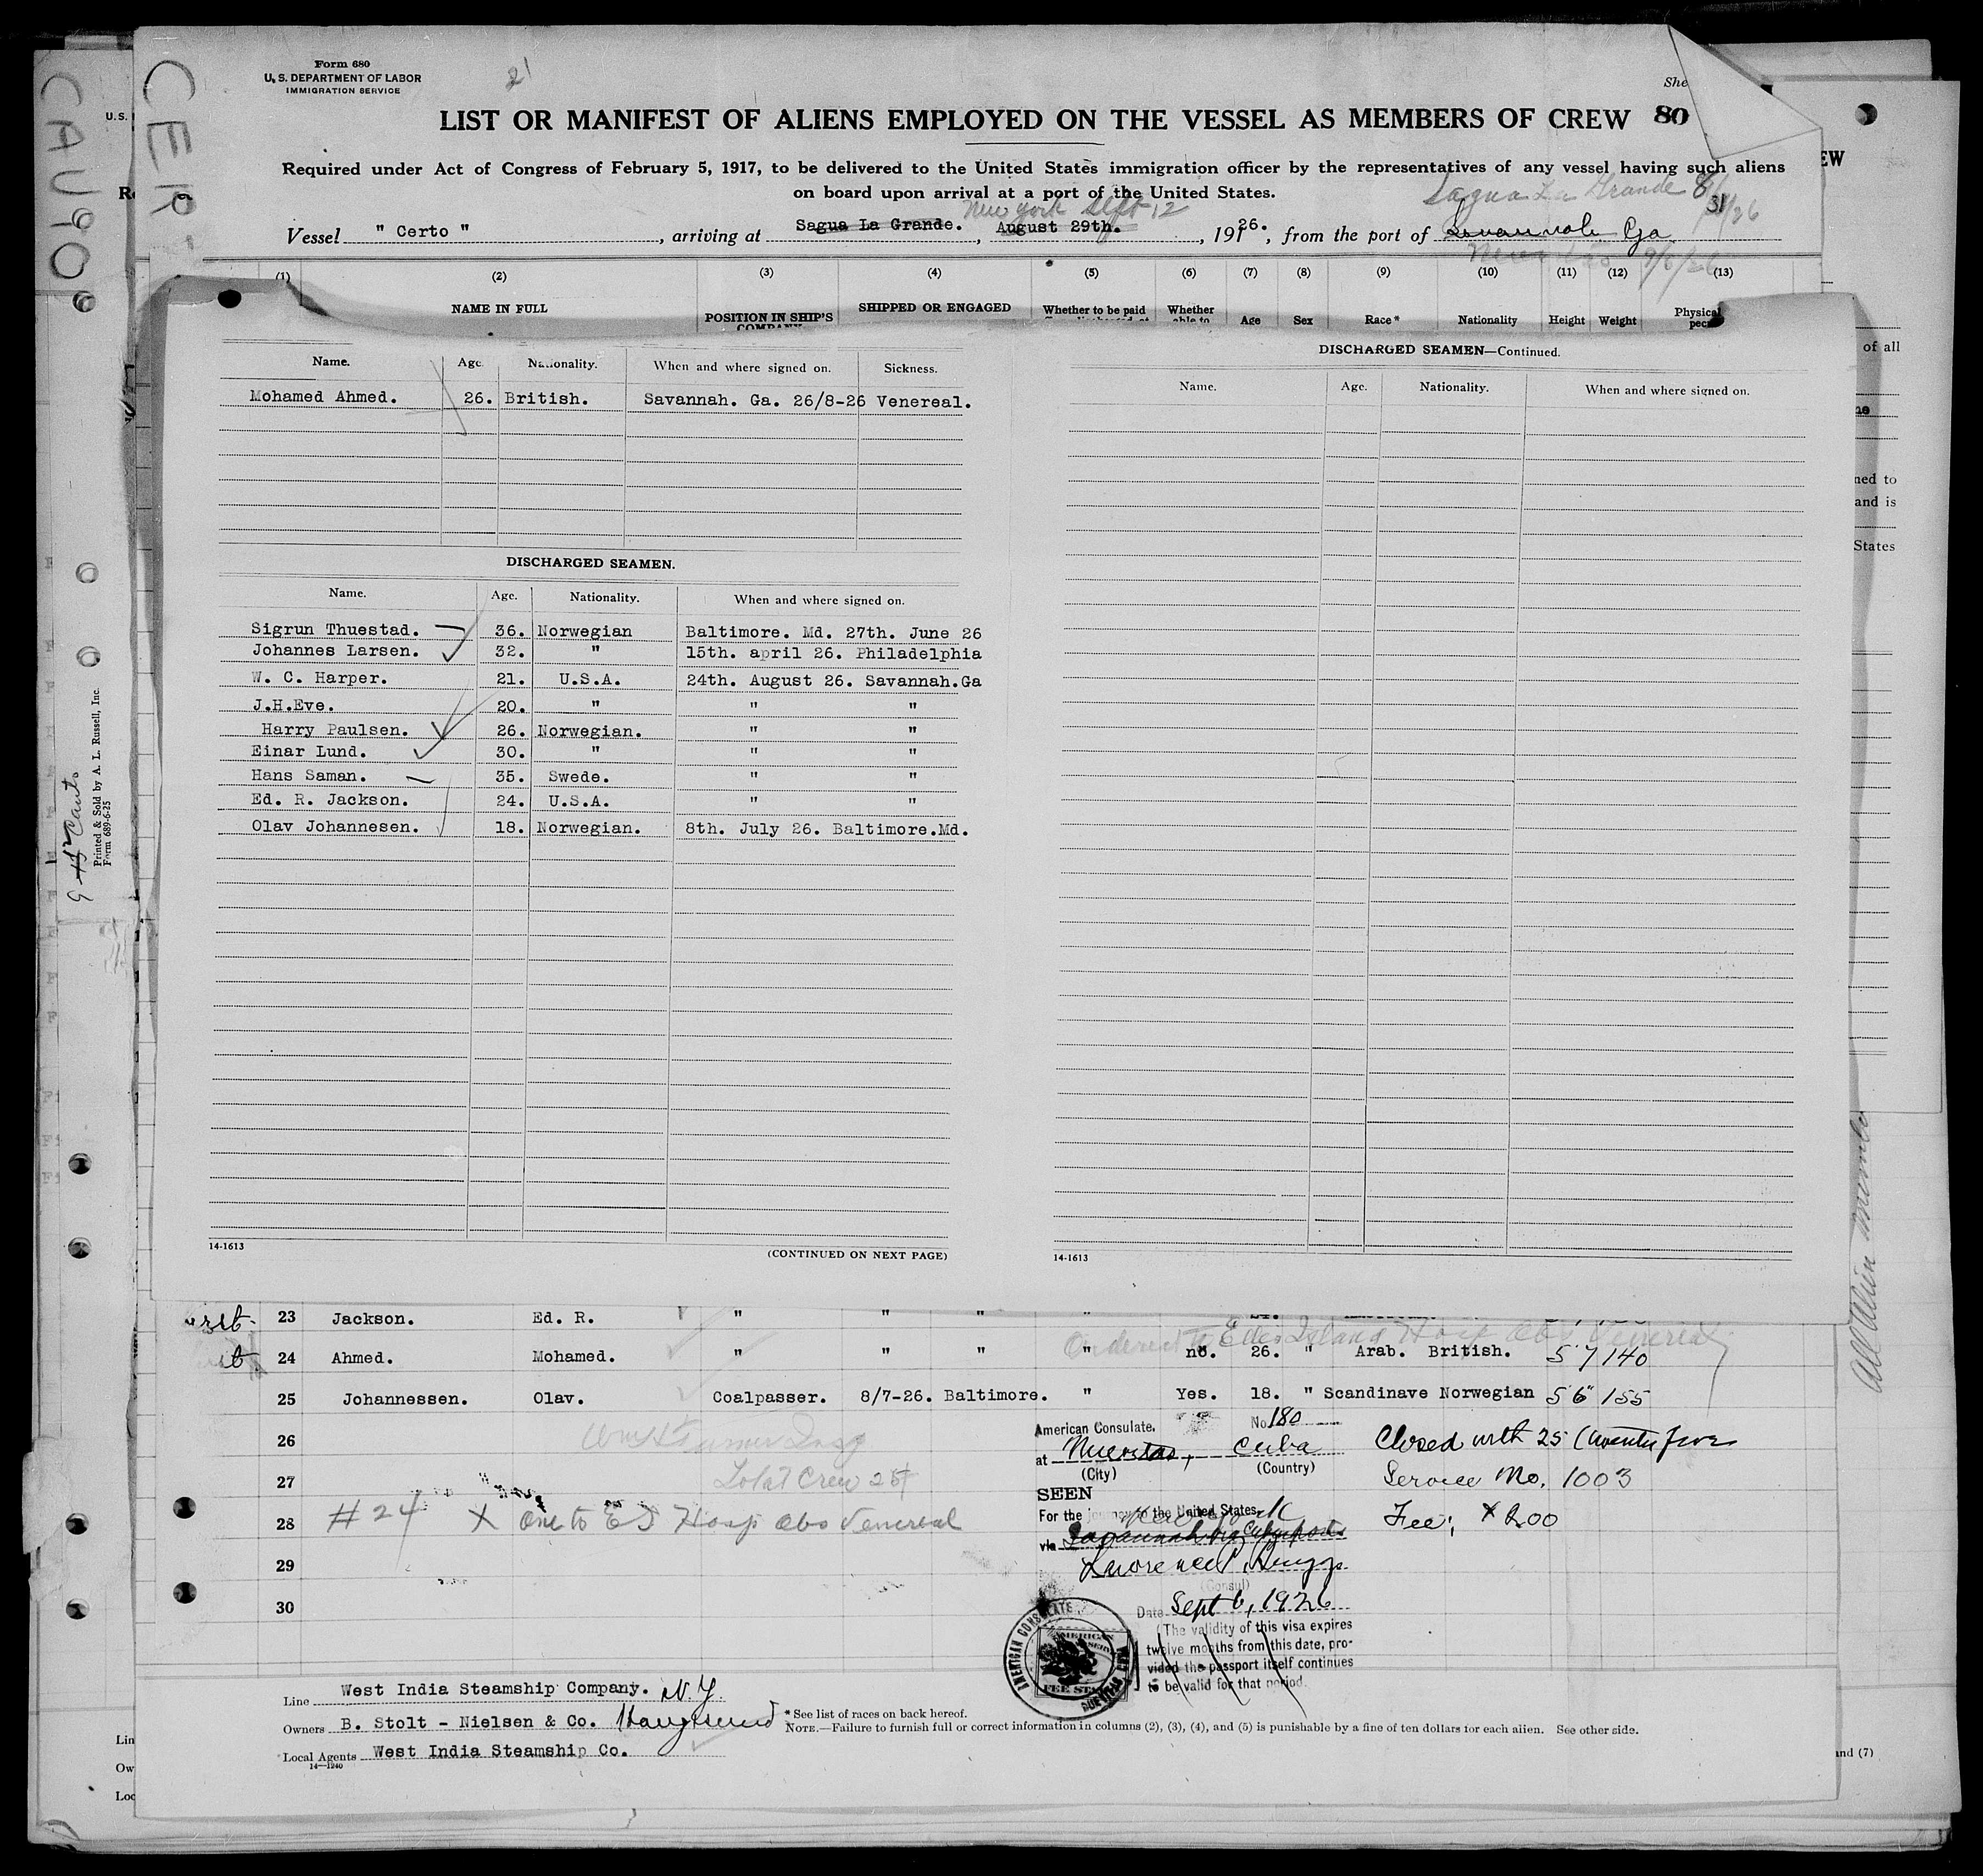 Form 680
U. S. DEPARTMENT OF LABOR
IMMIGRATION SERVICE
21
She
LIST OR MANIFEST OF ALIENS EMPLOYED ON THE VESSEL AS MEMBERS OF CREW 80
Required under Act of Congress of February 5, 1917, to be delivered to the United States immigration officer by the representatives of any vessel having such aliens
on board upon arrival at a port of the United States.
Sagua La Grande 8/31/26
New York Sept 12
Vessel " Certo ", arriving at Sagua La Grande., August 29th., 1926., from the port of Savannah Ga.
9/6/26
(1) (2) (3) (4) (5) (6) (7) (8) (9) (10) (11) (12) (13)
NAME IN FULL POSITION IN SHIP'S COMPANY SHIPPED OR ENGAGED Whether to be paid Whether able to Age Sex Race * Nationality Height Weight Physical
Name. Age. Nationality. When and where signed on. Sickness.
Mohamed Ahmed. 26. British. Savannah. Ga. 26/8-26 Venereal.
DISCHARGED SEAMEN.
Name. Age. Nationality. When and where signed on.
Sigrun Thuestad. 36. Norwegian Baltimore. Md. 27th. June 26
Johannes Larsen. 32. " 15th. april 26. Philadelphia
W. C. Harper. 21. U.S.A. 24th. August 26. Savannah.Ga
J.H.Eve. 20. " " "
Harry Paulsen. 26. Norwegian. " "
Einar Lund. 30. " " "
Hans Saman. 35. Swede. " "
Ed. R. Jackson. 24. U.S.A. " "
Olav Johannesen. 18. Norwegian. 8th. July 26. Baltimore.Md.
14-1613
(CONTINUED ON NEXT PAGE)
DISCHARGED SEAMEN—Continued.
Name. Age. Nationality. When and where signed on.
14-1613
23 Jackson. Ed. R. " " " "
Ordered to Ellis Island Hosp Obs Venereal
24 Ahmed. Mohamed. " " " " no. 26. " Arab. British. 5 7 140
25 Johannessen. Olav. Coalpasser. 8/7-26. Baltimore. " Yes. 18. " Scandinave Norwegian 5 6" 155
26
27 Total Crew 25
28 # 24 X One to E I Hosp obs Venereal
29
30
American Consulate, No. 180
at Nuevitas, Cuba
(City) (Country)
SEEN
For the journey to the United States
via Savannah
(Consul)
Date Sept 6, 1926
(The validity of this visa expires
twelve months from this date, pro-
vided the passport itself continues
to be valid for that period.
Closed with 25 (twenty five
Service No. 1003
Fee: $2.00
AMERICAN CONSULATE
FEE STAMP
Line West India Steamship Company. N.Y.
Owners B. Stolt - Nielsen & Co. Haugesund
Local Agents West India Steamship Co.
14—1240
* See list of races on back hereof.
NOTE.—Failure to furnish full or correct information in columns (2), (3), (4), and (5) is punishable by a fine of ten dollars for each alien. See other side.
CER
U. S.
Printed & Sold by A. L. Russell, Inc.
Form 689-6-25
Lin
Ow
Loc
EW
of all
ned to
and is
States
and (7)